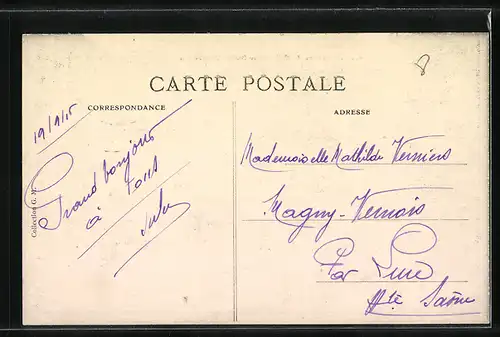 CARTE POSTALE
CORRESPONDANCE
ADRESSE
19/1/15
Grand bonjour
à tous
Collection G. M.
Mademoiselle Mathilde
Magny-Vernois
Par Lure
Hte Saône